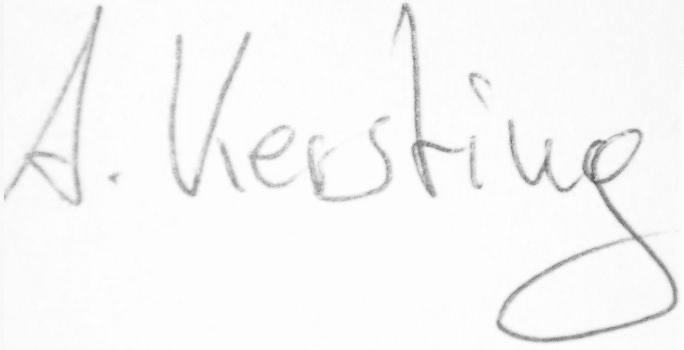 A. Kersting